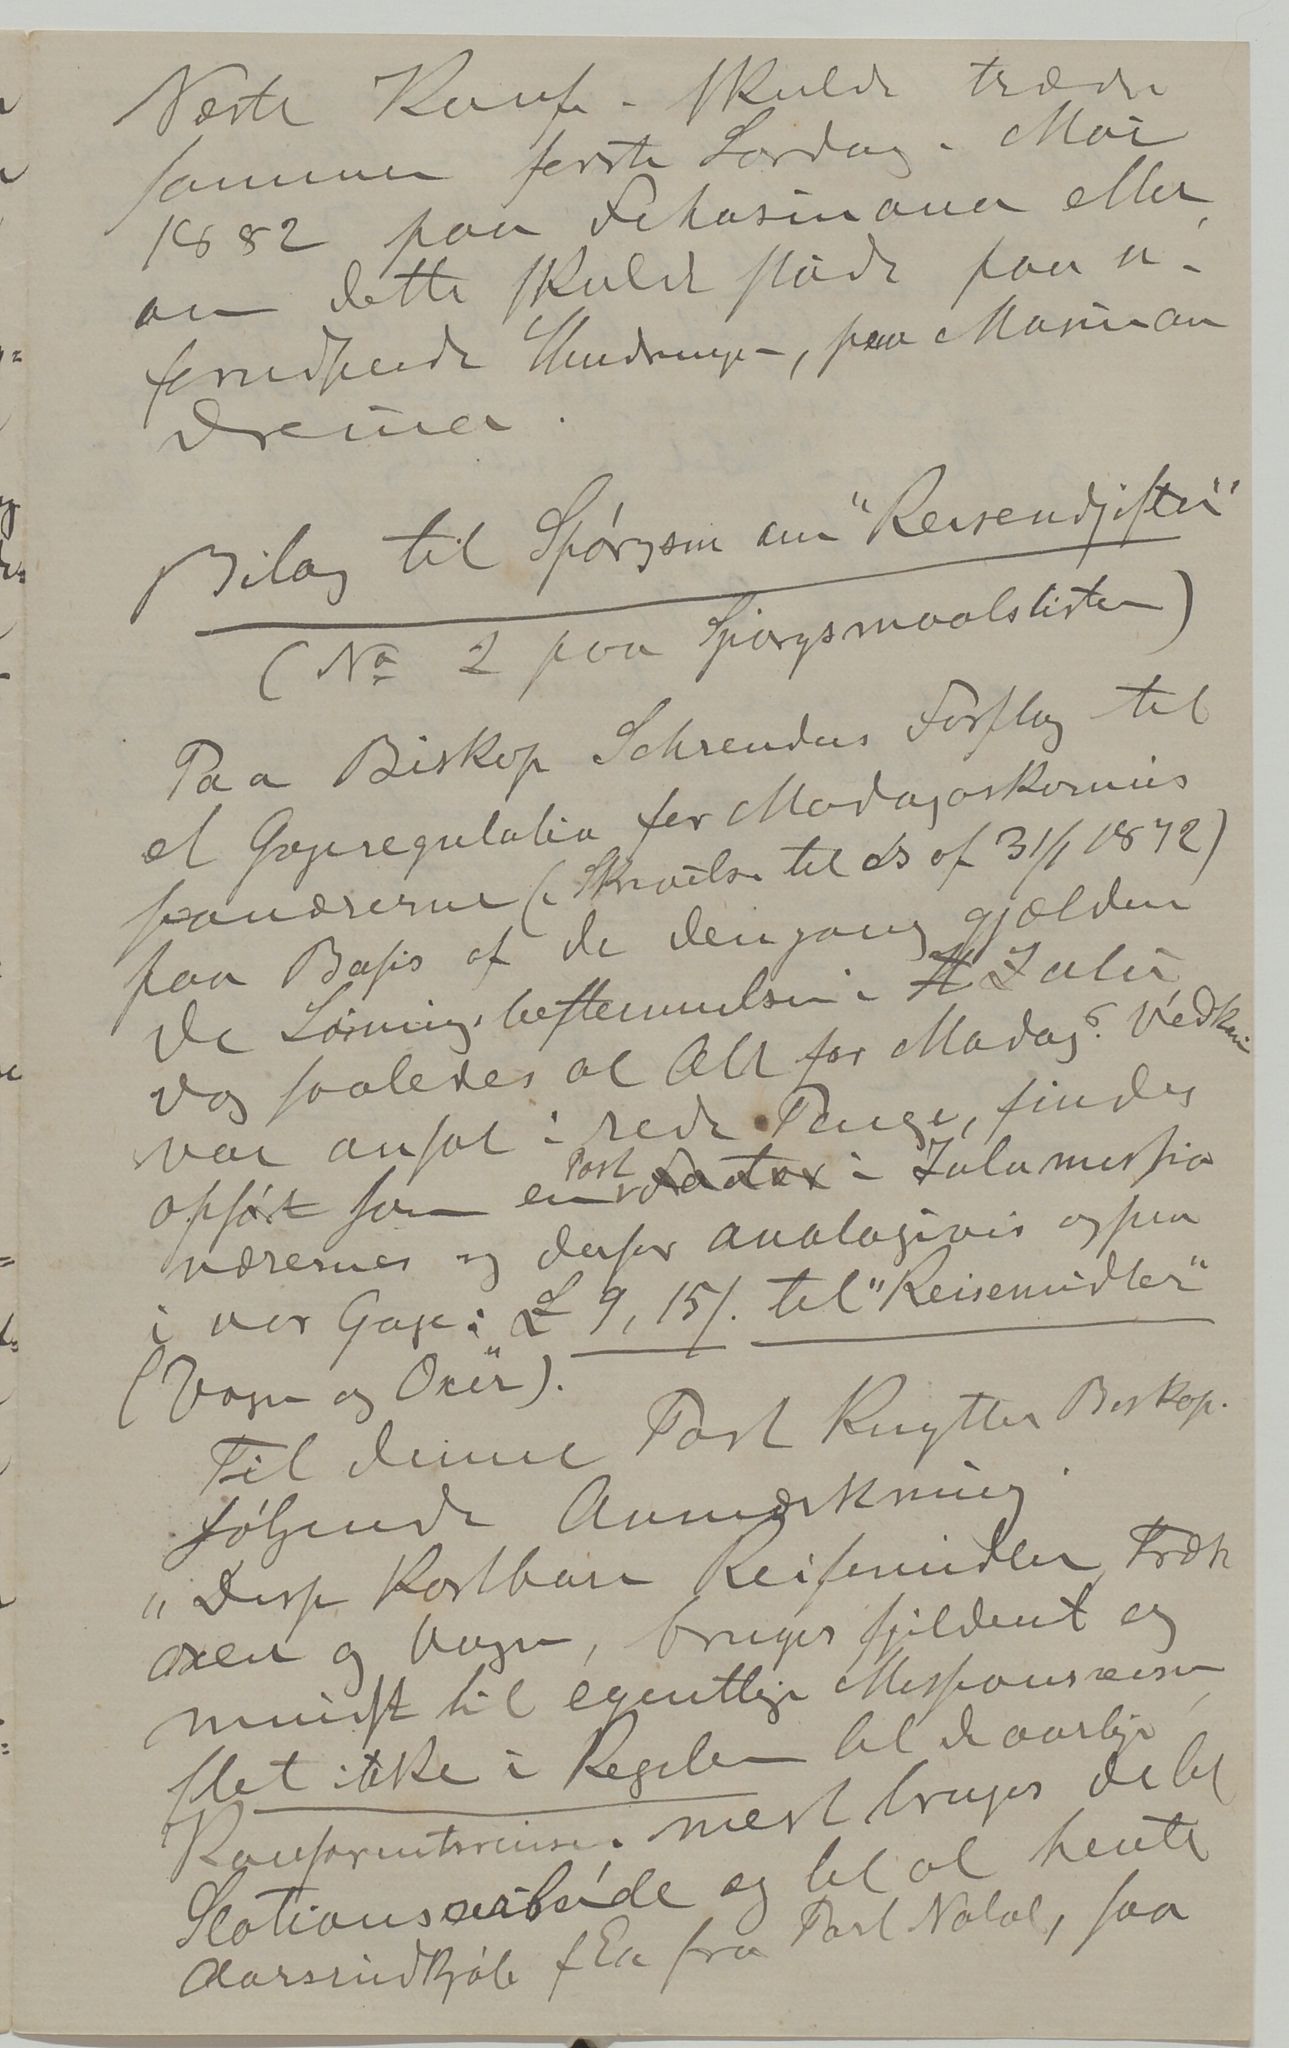 Næste Konf. skulde træde
sammen første Lørdag i Mai
1882 paa Fihasinana eller,
om dette skulde støde paa u-
forudseede Hindringer, paa Masinan
draina.
Bilag til Spørgsm om "Reiseudgifter"
(No 2 paa Spørgsmaalslisten)
Paa Biskop Schreuders Forslag til
et Gageregulativ for Madagaskarmis
sionærerne (i Skrivelse til ds af 31/1 1872)
paa Basis af de dengang gjælden
de Lønningsbestemmelser i Zulu,
dog saaledes at Alt for Madag. Vedkom
var ansat i rede Penge, findes
opført som en Post i Zulumissio
nærernes og derfor analogivis ogsaa
i vor Gage: £ 9, 15/. til "Reisemidler"
(Vogn og Oxer").
Til denne Post knytter Biskop.
følgende Anmærkning
"Disse kostbare Reisemidler, Træk
oxer og Vogn, bruges sjeldent og
mindst til egentlige Missionsreiser,
slet ikke i Regelen til de aarlige
Konferentsreiser. mest bruges de til
Stationsarbeide og til at hente
Aarsindkjøb f Ex fra Port Natal, saa